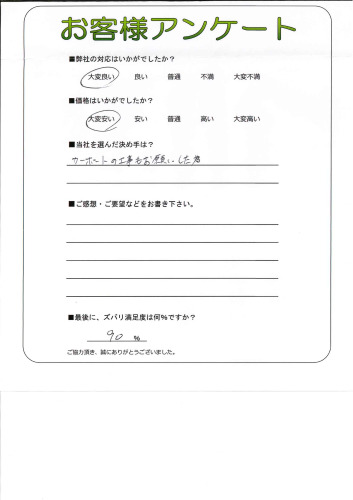 お客様アンケート
■弊社の対応はいかがでしたか？
大変良い 良い 普通 不満 大変不満
■価格はいかがでしたか？
大変安い 安い 普通 高い 大変高い
■当社を選んだ決め手は？
カーポートの工事もお願いした為
■ご感想・ご要望などをお書き下さい。
■最後に、ズバリ満足度は何%ですか？
90 %
ご協力頂き、誠にありがとうございました。